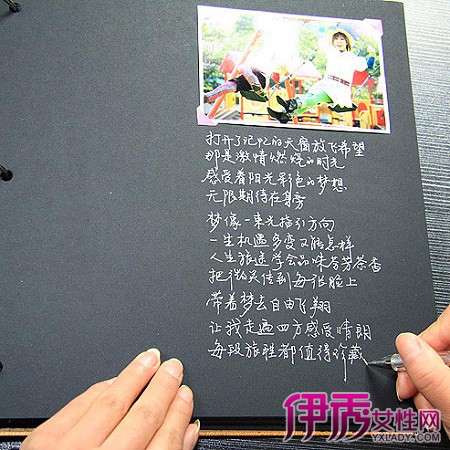 打开了记忆的天窗放飞希望
那是激情燃烧的时光
感受着阳光彩色的梦想
无限期待在身旁
梦像一束光指引方向
一生机遇多变又能怎样
人生旅途学会品味苦芳茶香
把微笑传到每张脸上
带着梦去自由飞翔
让我走遍四方感受晴朗
每段旅程都值得珍藏
伊秀女性网
YXLADY.COM